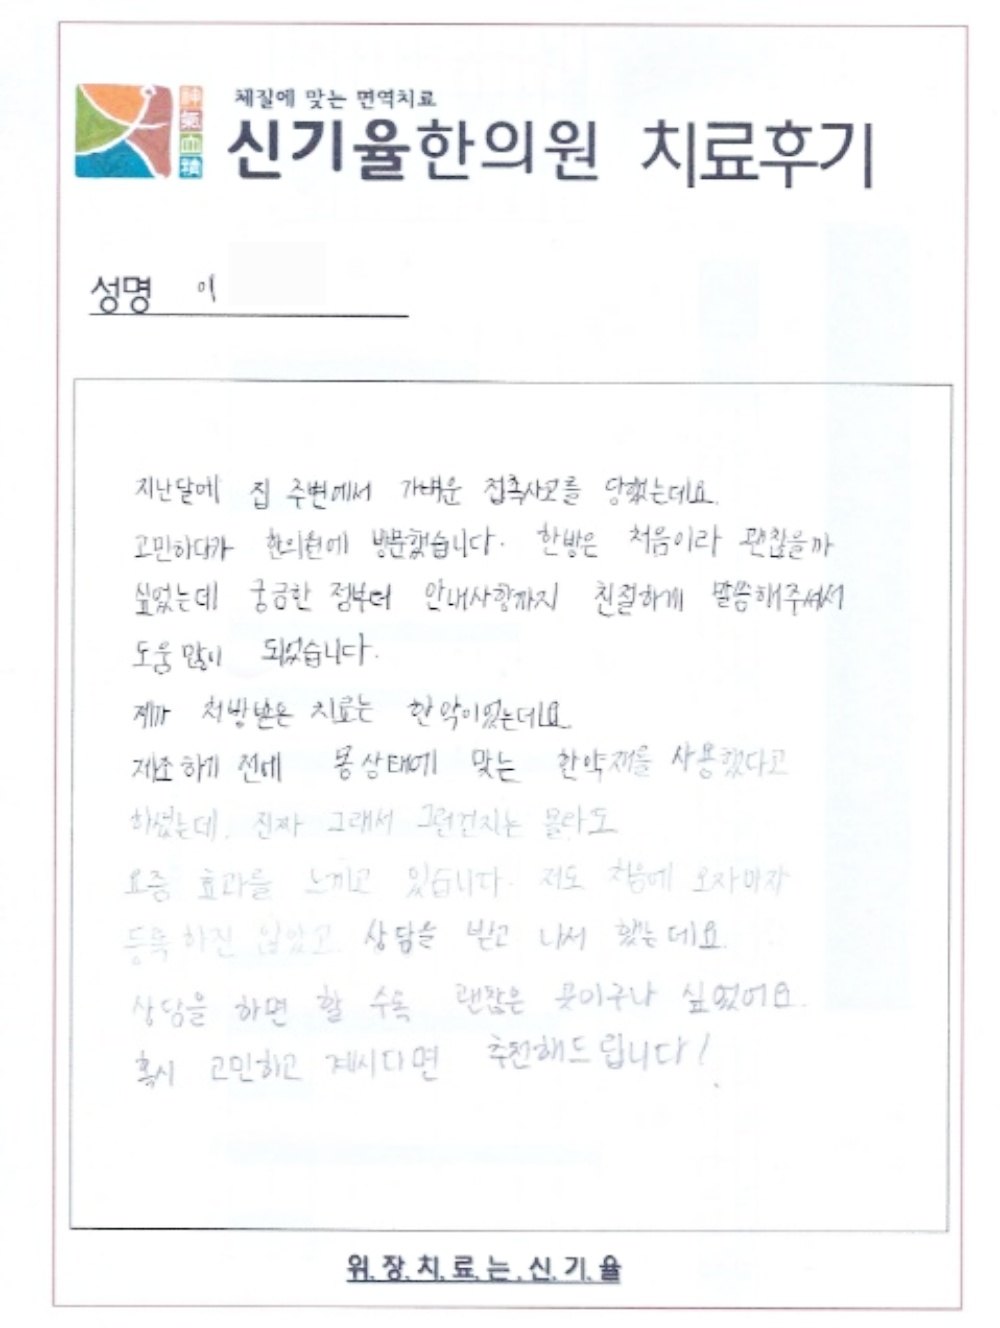 체질에 맞는 면역치료
神氣血精
신기율한의원 치료후기
성명 이
지난달에 집 주변에서 가벼운 접촉사고를 당했는데요.
고민하다가 한의원에 방문했습니다. 한방은 처음이라 괜찮을까
싶었는데 궁금한 점부터 안내사항까지 친절하게 말씀해주셔서
도움 많이 되었습니다.
제가 처방받은 치료는 한약이었는데요.
제조하기 전에 몸상태에 맞는 한약재를 사용했다고
하셨는데, 진짜 그래서 그런건지는 몰라도
요즘 효과를 느끼고 있습니다. 저도 처음에 오자마자
등록하진 않았고, 상담을 받고 나서 했는데요.
상담을 하면 할 수록 괜찮은 곳이구나 싶었어요.
혹시 고민하고 계시다면 추천해드립니다!
위.장.치.료.는.신.기.율